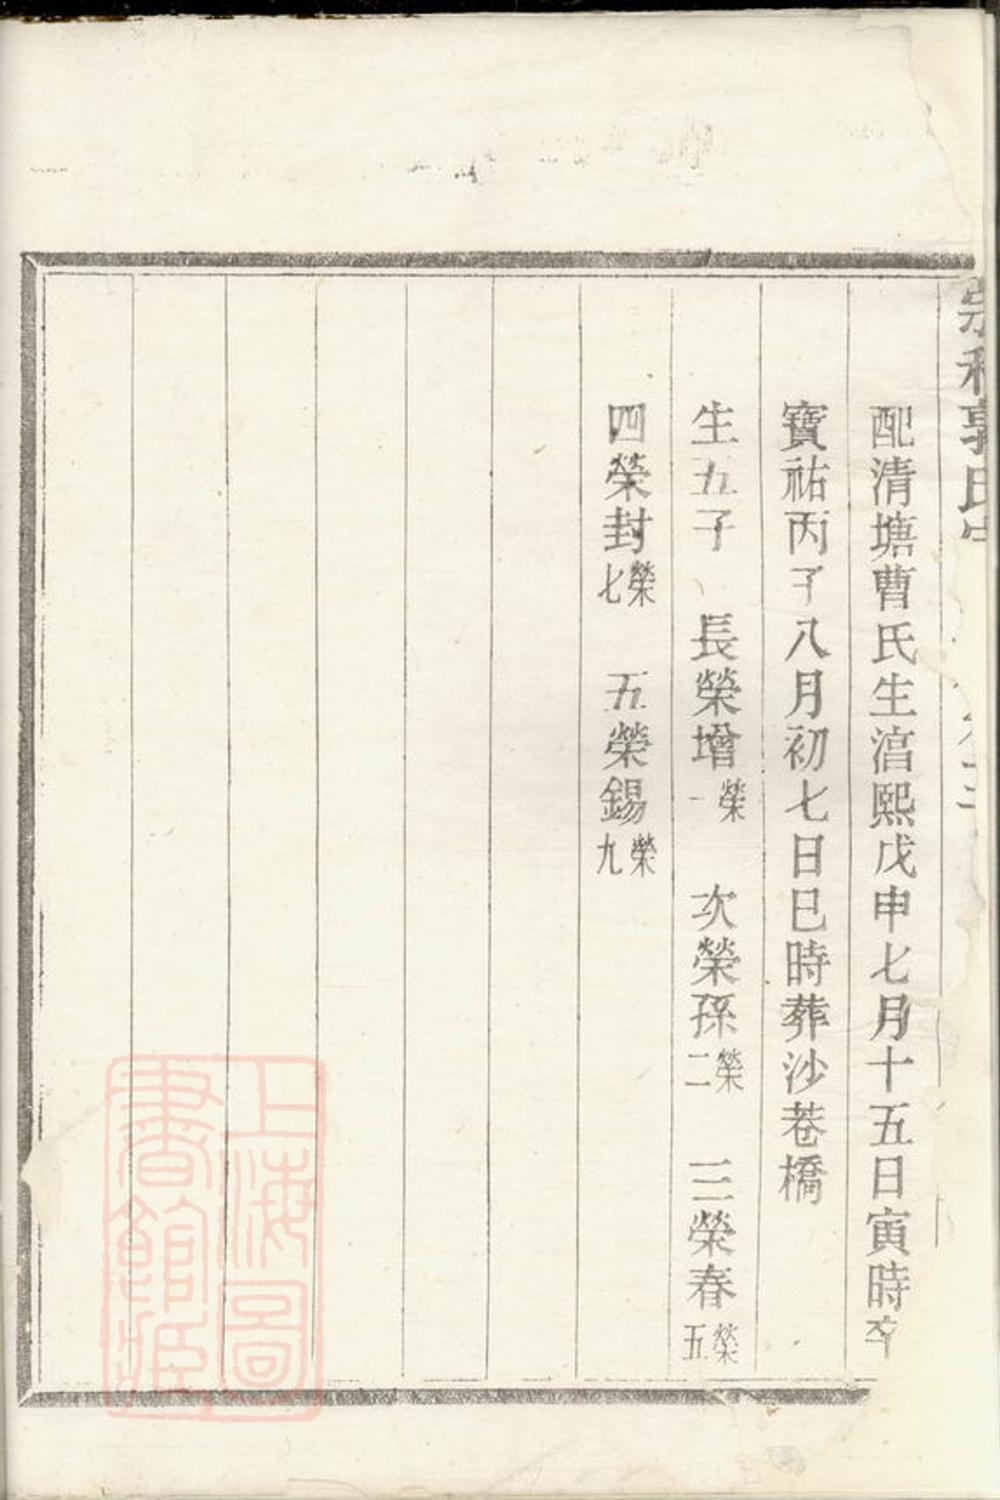 郭氏
配清塘曹氏生淳熙戊申七月十五日寅時卒
寶祐丙子八月初七日巳時葬沙巷橋
生五子 長榮增榮一 次榮孫榮二 三榮春榮五
四榮封榮七 五榮錫榮九
上海圖書館藏